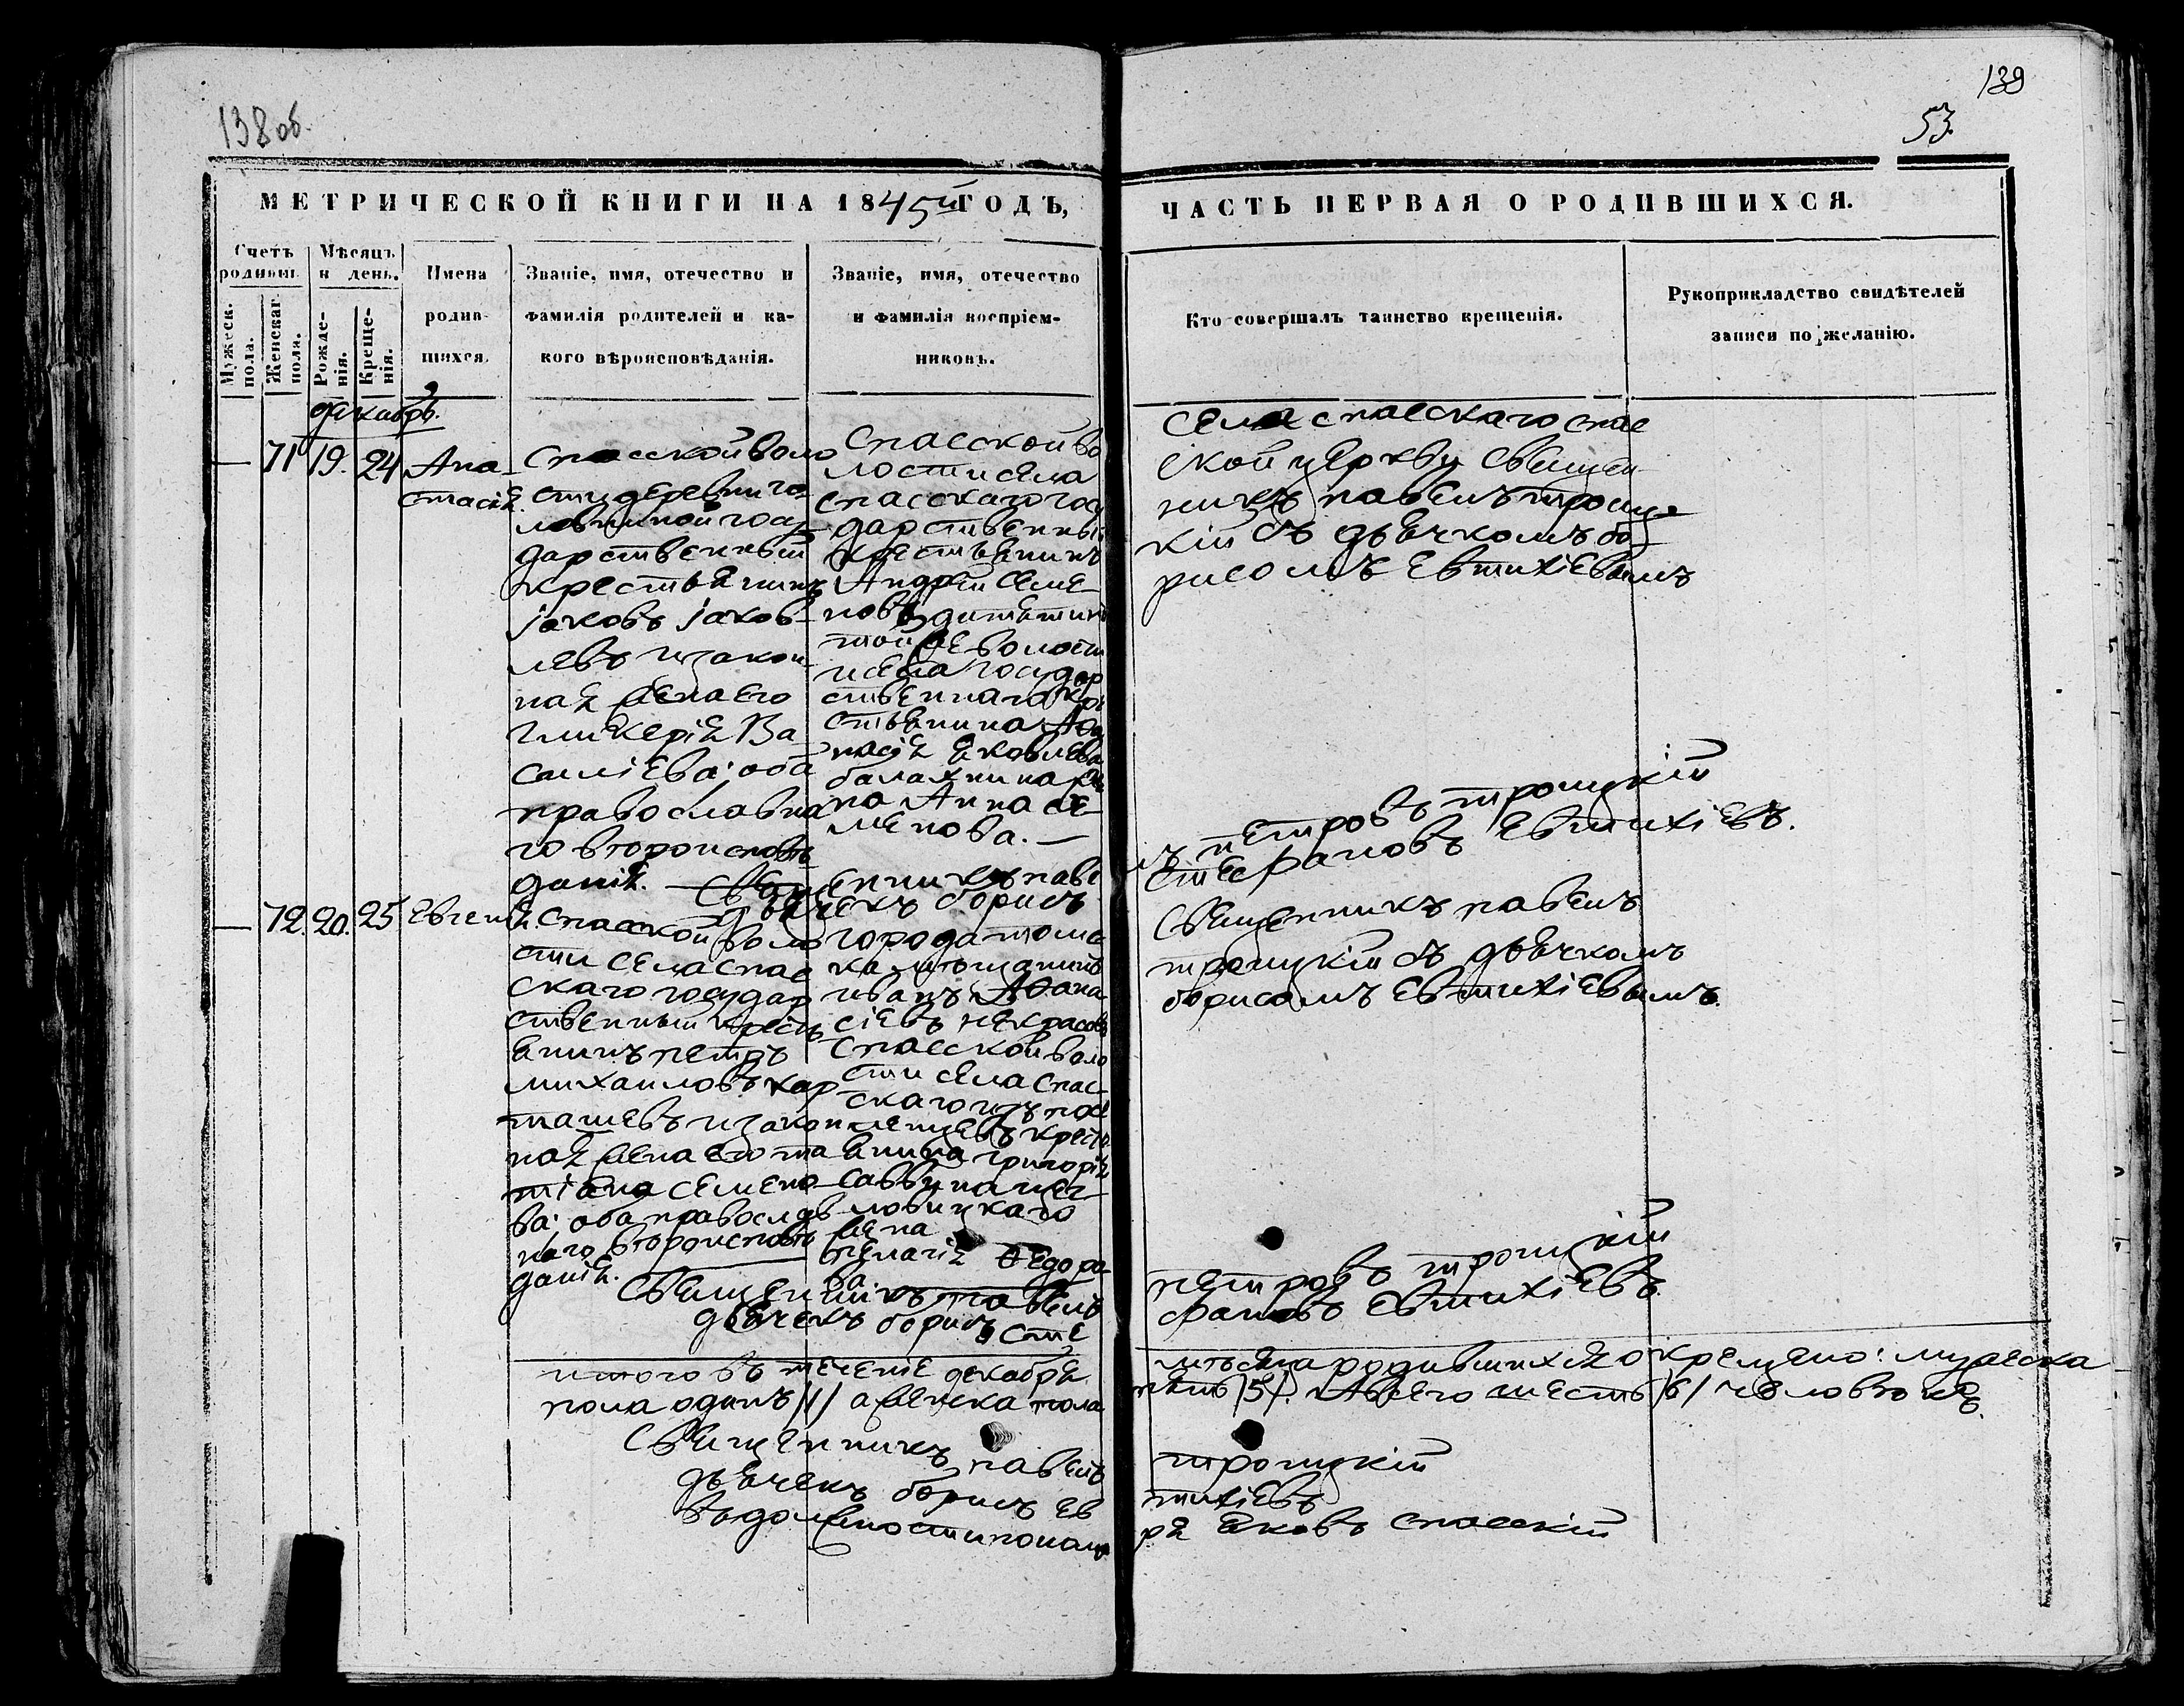 138 об.
139
53.
МЕТРИЧЕСКОЙ КНИГИ НА 1845й ГОДЪ,
ЧАСТЬ ПЕРВАЯ О РОДИВШИХСЯ.
Счетъ родивш.
Мужеск. пола.
Женскаг. пола.
Мѣсяцъ и день.
Рожденія.
Крещенія.
Имена
родив-
шихся.
Званіе, имя, отечество и
фамилія родителей и ка-
кого вѣроисповѣданія.
Званіе, имя, отечество
и фамилія воспріем-
никовъ.
Кто совершалъ таинство крещенія.
Рукоприкладство свидѣтелей
записи по желанію.
декабрь.
— 71 19. 24 Ана-
стасія.
Спасской воло
сти деревни го-
ловниной госу
дарственный
крестьянинъ
јаковъ јаков-
левъ и закон-
ная жена его
гликерія Ва-
силіева; оба
православна
го вѣроисповѣ
данія.
Спасской во
лости села
спасскаго госу
дарственный
крестьянинъ
Андрей Семе-
новъ
той же волости
и села государ
ственнаго кре
стьянина Афа
насія Яковлева
балахнина же
на Анна се-
менова. —
села спасскаго спас
ской церкви священ
никъ павелъ троиц-
кій съ дьячкомъ бо-
рисомъ Евтихіевымъ
Священникъ павелъ петровъ троицкій
дьячекъ борисъ стефановъ Евтихіевъ.
— 72. 20. 25 Евгенія.
спасской воло
сти села спас
скаго государ
ственный кресть
янинъ петръ
михаиловъ кар
ташевъ и закон
ная жена его та
тіана семено-
ва: оба православ
наго вѣроисповѣ
данія.
города томс
ка мѣщанинъ
иванъ Афана-
сіевъ некрасовъ
Спасской воло
сти села спас-
скаго изъ посе
ленцевъ кресть
янина григорія
саввина
ловицкаго
жена
пелагія Ѳедоро-
ва.
Священникъ павелъ
троицкій съ дьячкомъ
борисомъ Евтихіевымъ.
Священникъ павелъ петровъ троицкій
дьячекъ борисъ стефановъ Евтихіевъ.
итого въ теченіе декабря мѣсяца родившихся окрещено: мужеска
пола одинъ /1/ а женска пола пять /5/. А всего шесть /6/ человѣкъ.
Священникъ павелъ троицкій
дьячекъ борисъ Евтихіевъ
въ должности понамаря Яковъ спасскій